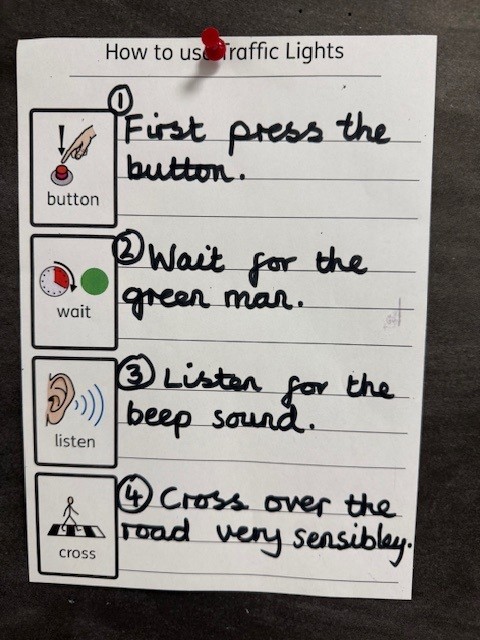 How to use Traffic Lights
①
First press the
button.
button
② Wait for the
green man.
wait
③ Listen for the
beep sound.
listen
④ Cross over the
road very sensibley.
cross